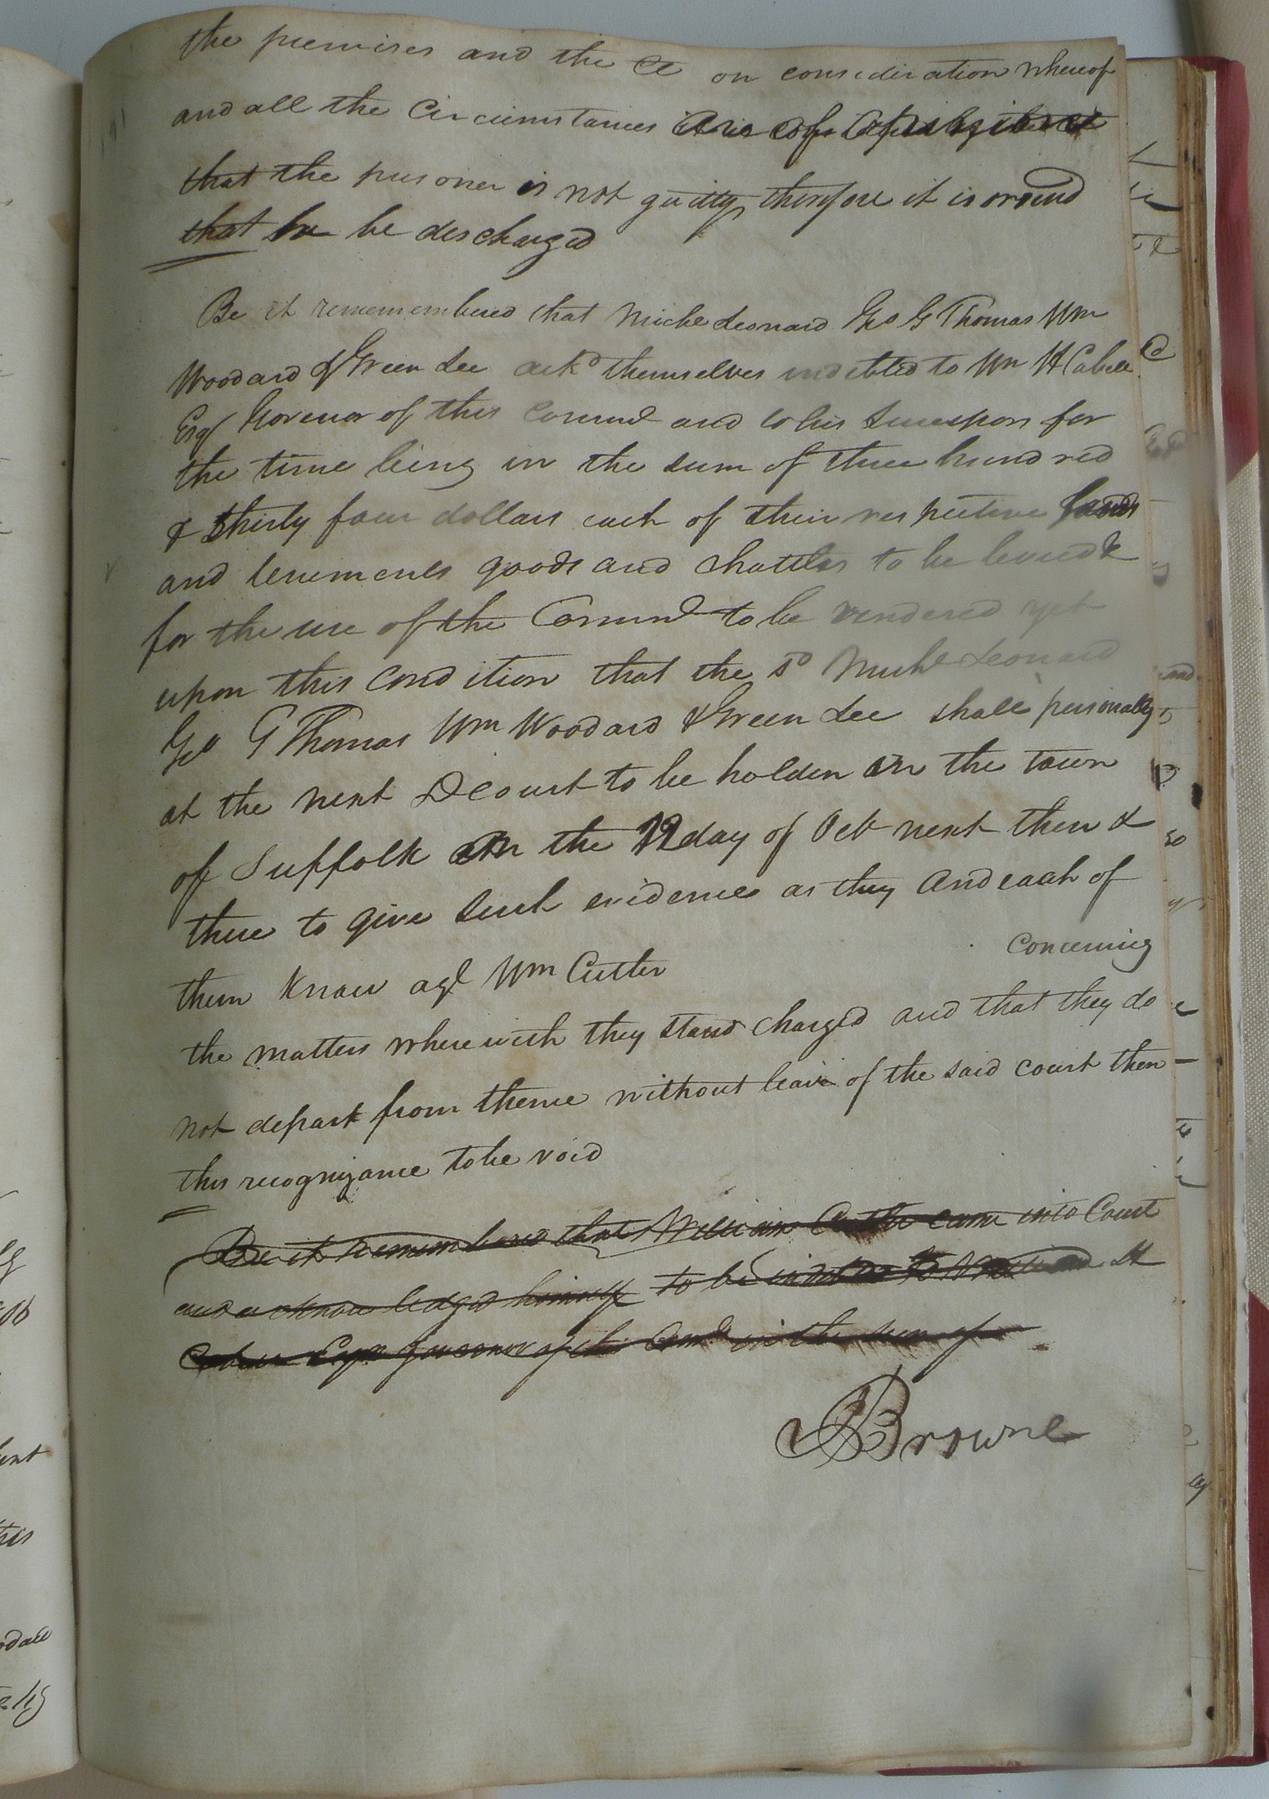 the premises and the Ct on consideration whereof
and all the Circumstances are of opinion
that the prisoner is not guilty therefore it is ordered
that he be descharged
Be it rememembered that Michl Leonard Geo G Thomas Wm
Woodard & Green Lee ackd themselves indebted to Wm H Cabell
Esqr Govenor of this Commd and to his Successors for
the time being in the sum of three hundred
& thirty four dollars each of their respective lands
and tenements goods and chattles to be levied &
for the use of the Commd to be rendered yet
upon this condition that the sd Michl Leonard
Geo G Thomas Wm Woodard & Green Lee shall personally
at the next D Court to be holden in the town
of Suffolk on the 12 day of Oct next then &
there to give such evidence as they and each of
them know agt Wm Cutler concerning
the matters wherewith they stand charged and that they do
not depart from thence without leave of the said court then
this recognizance to be void
Be it remembered that William Cutler came into Court
and acknowledged himself to be indebted to William H
Cabell Esqr governor of the Comd in the sum of
Browne